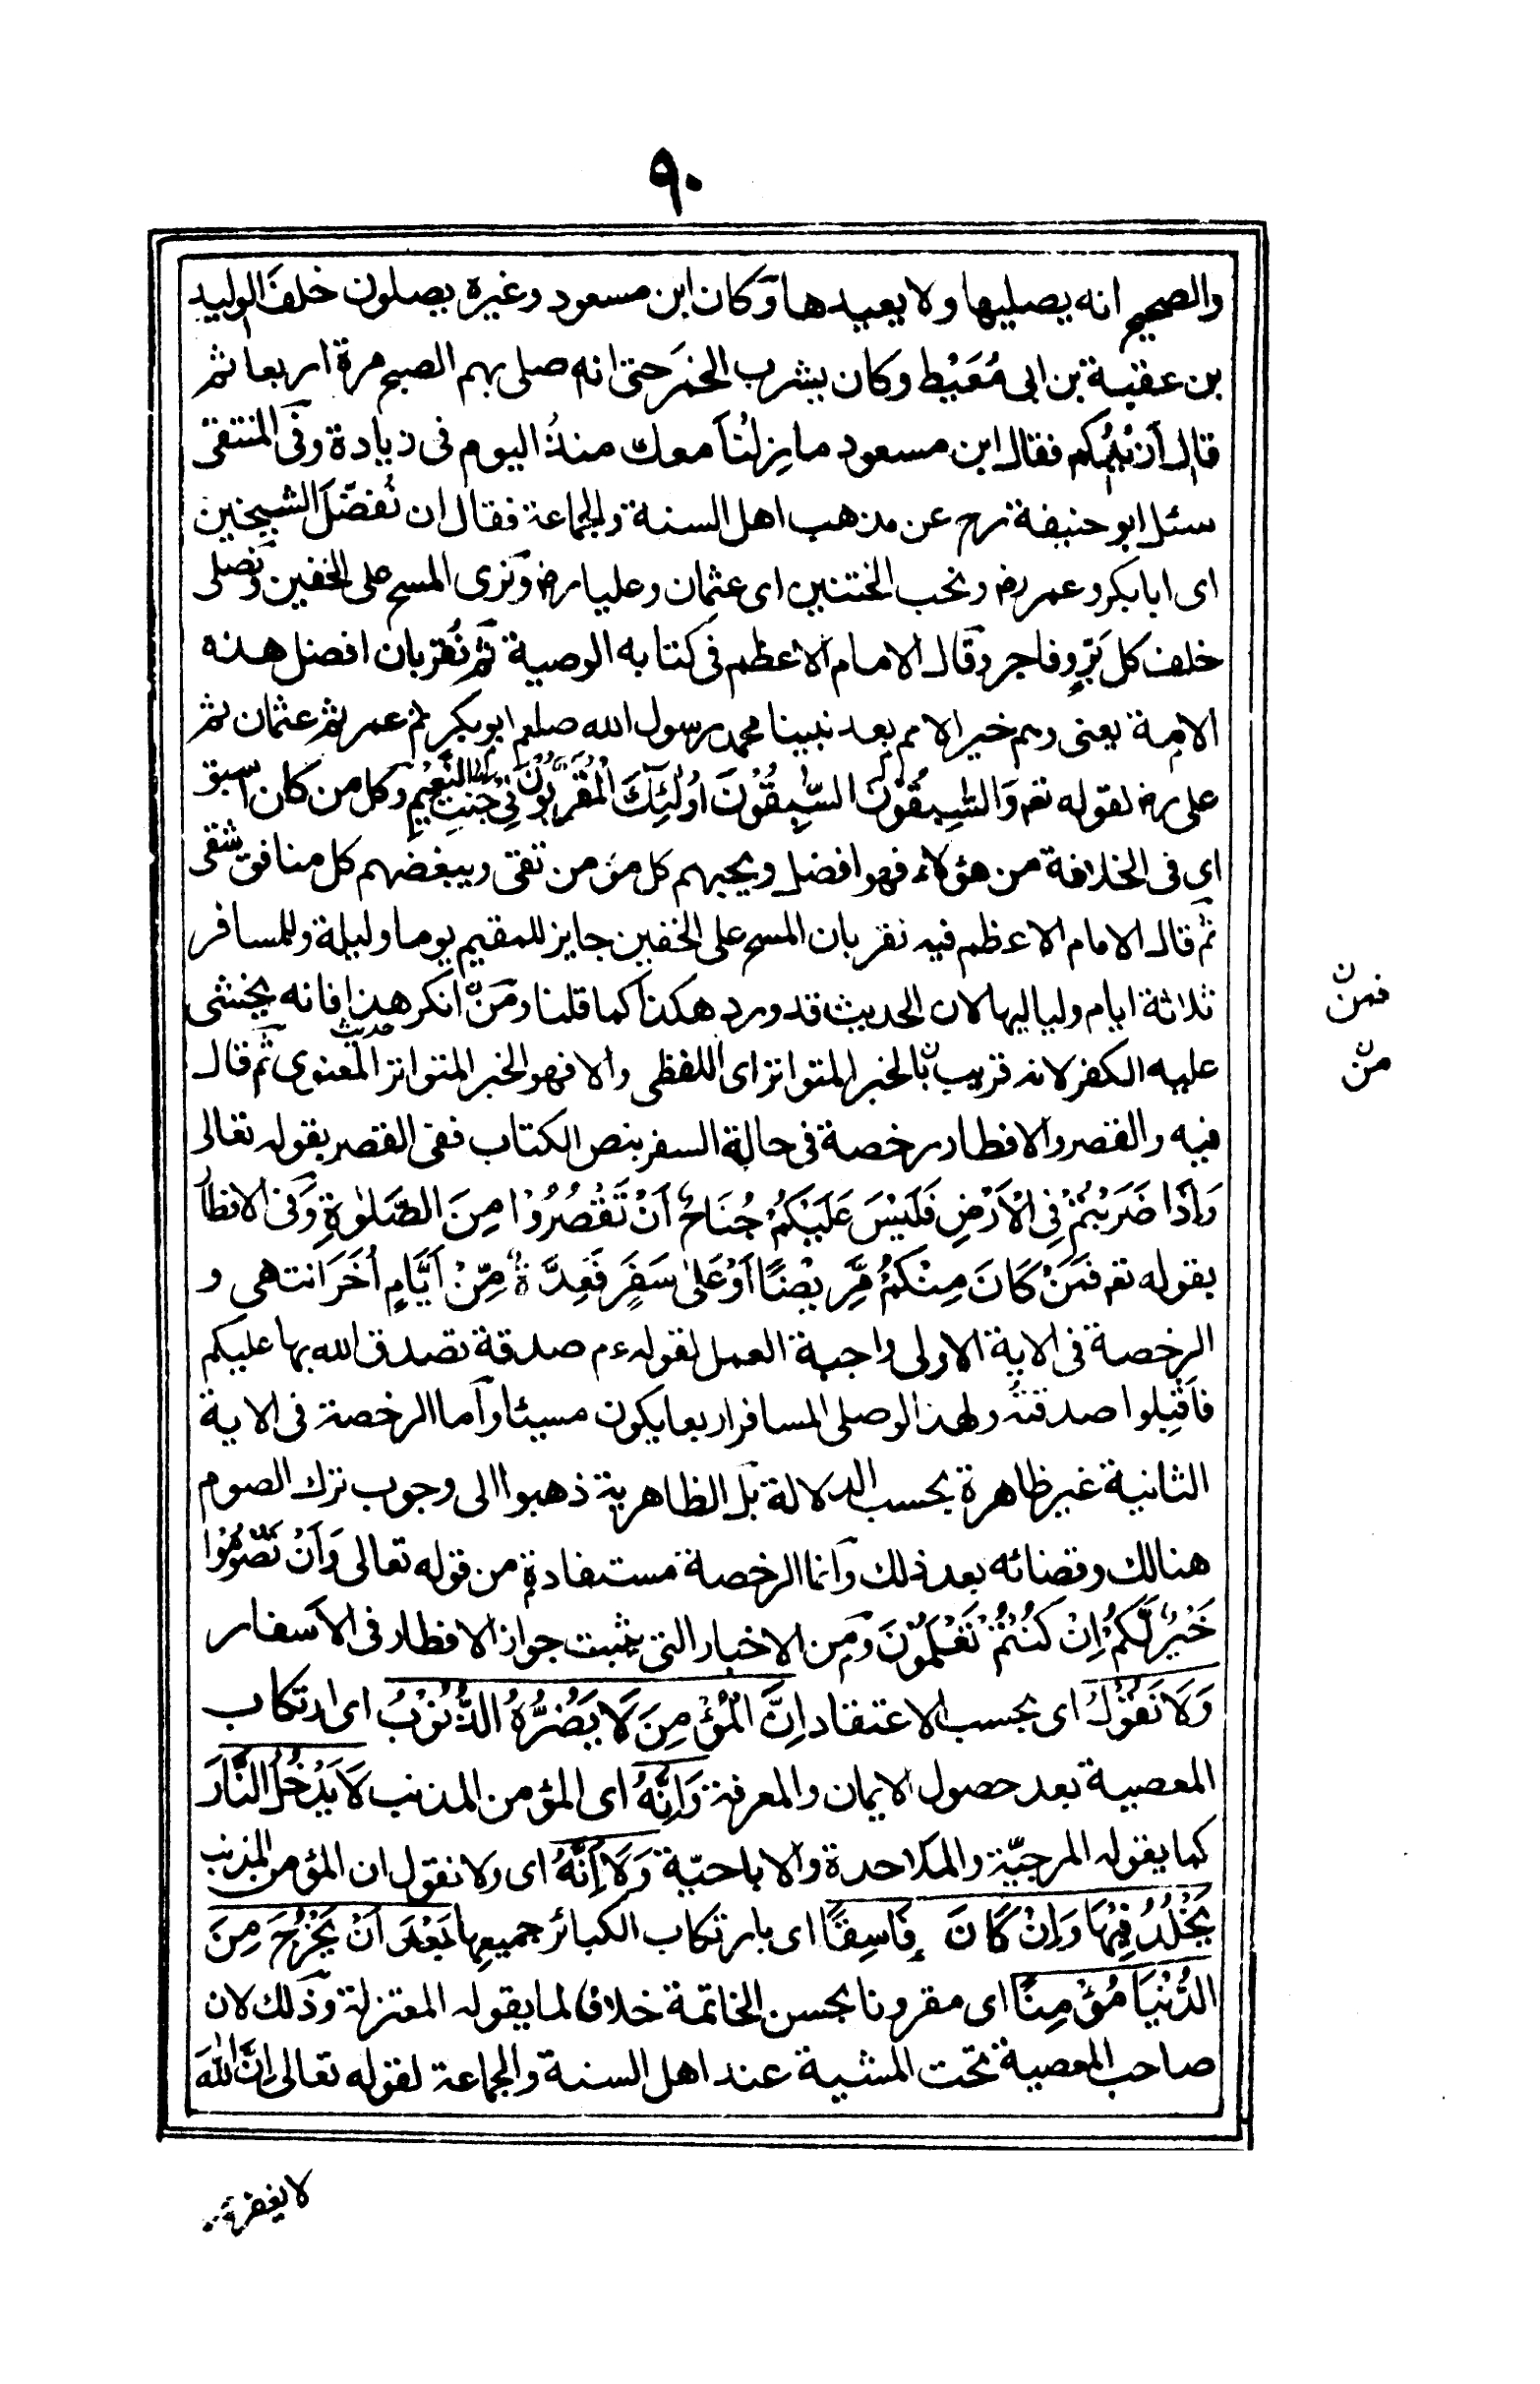 ٩٠
والصحيح انه يصليها ولا يعيدها وكان ابن مسعود وغيره يصلون خلف الوليد
بن عقبة بن ابى مُعَيْط وكان يشرب الخمر حتى انه صلى بهم الصبح مرة اربعا ثم
قال أزيدكم فقال ابن مسعود ما زلنا معك منذ اليوم فى زيادة وفى المنتقى
سئل ابو حنيفة رح عن مذهب اهل السنة والجماعة فقال ان نُفضّل الشيخين
اى ابا بكر وعمر رض ونحب الختنين اى عثمان وعليا رض ونرى المسح على الخفين ونصلى
خلف كل بَرٍّ وفاجر وقال الامام الاعظم فى كتابه الوصية ثم نُقر بان افضل هذه
الامة يعنى وهم خير الامم بعد نبينا محمد رسول الله صلعم ابو بكر ثم عمر ثم عثمان ثم
على رض لقوله تع وَالسّٰبِقُوْنَ السّٰبِقُوْنَ اُولٰئِكَ الْمُقَرَّبُوْنَ فِىْ جَنّٰتِ النَّعِيْمِ وكل من كان اسبق
اى فى الخلافة من هؤلاء فهو افضل ويحبهم كل مؤمن تقى ويبغضهم كل منافق شقى
ثم قال الامام الاعظم فيه نقر بان المسح على الخفين جايز للمقيم يوما وليلة وللمسافر
ثلاثة ايام ولياليها لان الحديث قد ورد هكذا كما قلنا ومَنْ انكر هذا فانه يخشى
عليه الكفر لانه قريب بالخبر المتواتر اى اللفظى والا فهو الخبر المتواتر المعنوى ثم قال
فيه والقصر والافطار رخصة فى حالة السفر بنص الكتاب ففى القصر بقوله تعالى
وَاِذَا ضَرَبْتُمْ فِى الْاَرْضِ فَلَيْسَ عَلَيْكُمْ جُنَاحٌ اَنْ تَقْصُرُوْا مِنَ الصَّلٰوةِ وفى الافطا
بقوله تع فَمَنْ كَانَ مِنْكُمْ مَّرِيْضًا اَوْ عَلٰى سَفَرٍ فَعِدَّةٌ مِّنْ اَيَّامٍ اُخَرَ انتهى و
الرخصة فى الاية الاولى واجبة العمل لقوله ءم صدقة تصدق الله بها عليكم
فاقبلوا صدقته ولهذا لو صلى المسافر اربعا يكون مسيئا واما الرخصة فى الاية
الثانية غير ظاهرة بحسب الدلالة بل الظاهرية ذهبوا الى وجوب ترك الصوم
هنالك وقضائه بعد ذلك وانما الرخصة مستفادة من قوله تعالى وَاَنْ تَصُوْمُوْا
خَيْرٌ لَّكُمْ اِنْ كُنْتُمْ تَعْلَمُوْنَ ومن الاخبار التى يثبت جواز الافطار فى الاسفار
وَلَا نَقُوْلُ اى بحسب الاعتقاد اِنَّ الْمُؤْمِنَ لَا يَضُرُّهُ الذُّنُوْبُ اى ارتكاب
المعصية بعد حصول الايمان والمعرفة وَاِنَّهُ اى المؤمن المذنب لَا يَدْخُلُ النَّارَ
كما يقوله المرجيّة والملاحدة والاباحيّة وَلَا اِنَّهُ اى ولا نقول ان المؤمن المذنب
يَخْلُدُ فِيْهَا وَاِنْ كَانَ فَاسِقًا اى بارتكاب الكبائر جميعها بَعْدَ اَنْ يَخْرُجَ مِنَ
الدُّنْيَا مُؤْمِنًا اى مقرونا بحسن الخاتمة خلافا لما يقوله المعتزلة وذلك لان
صاحب المعصية تحت المشية عند اهل السنة والجماعة لقوله تعالى اِنَّ اللّٰهَ
لا يغفر
فمن ن
من ن
حديث